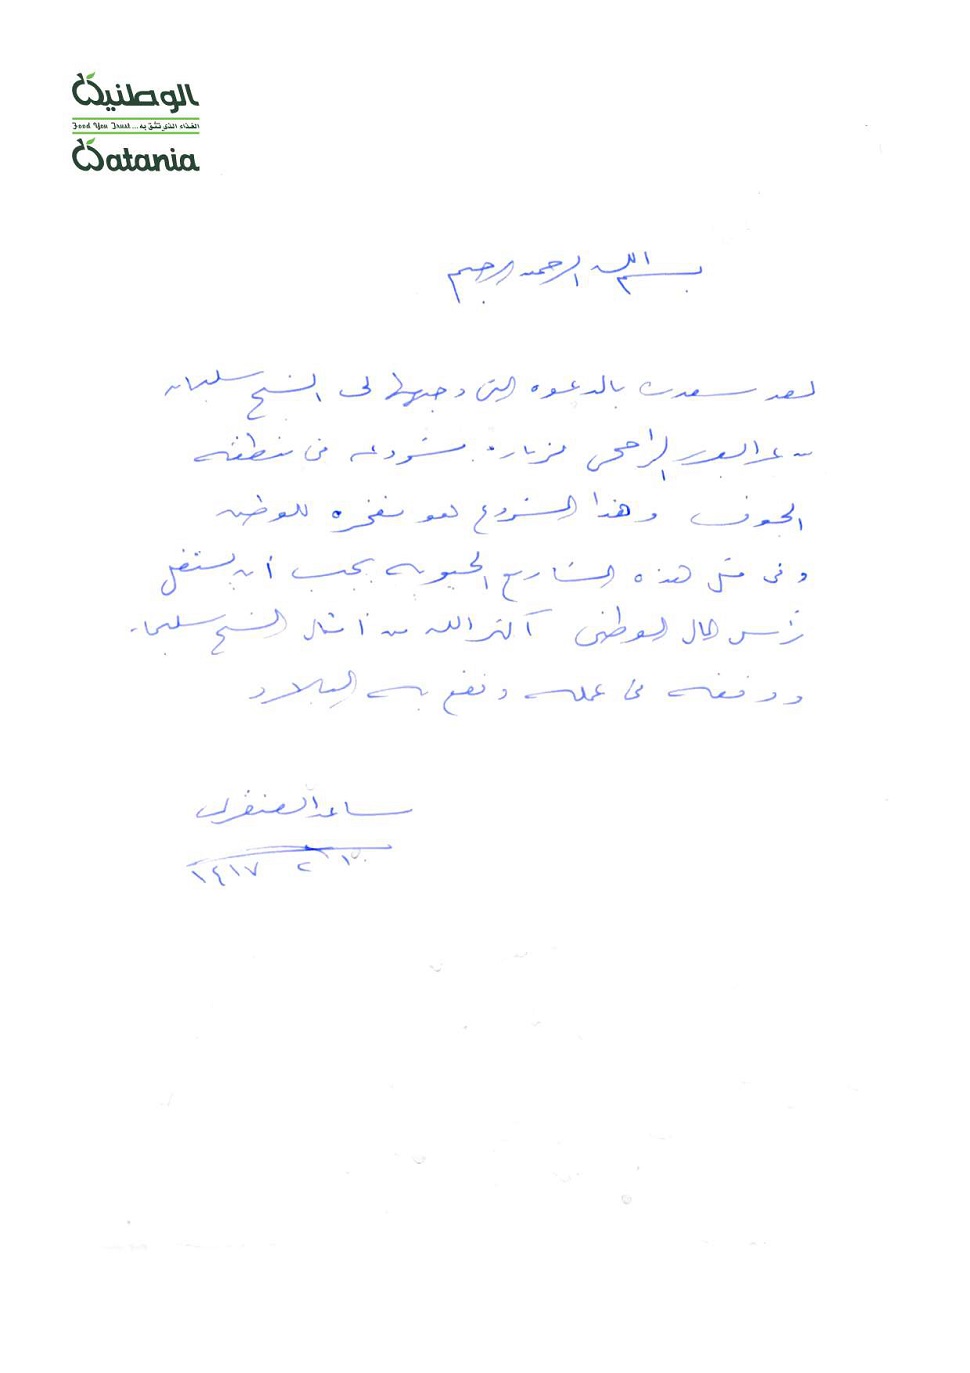 الوطنية
Food You Trust... الغذاء الذي تثق به
Watania
بسم الله الرحمن الرحيم
لقد سعدت بالدعوه التي وجهها لى الشيخ سليمان
بن عبد العزيز الراجحى لزيارة مشروعه فى منطقة
الجوف وهذا المشروع لهو مفخره للوطن
وفى مثل هذه المشاريع الحيويه يجب أن يستغل
رأس المال الوطنى أكثر الله من أمثال الشيخ سليمان
ووفقه فى عمله ونفع به البلاد
ساعد العنقرى
١٤١٧